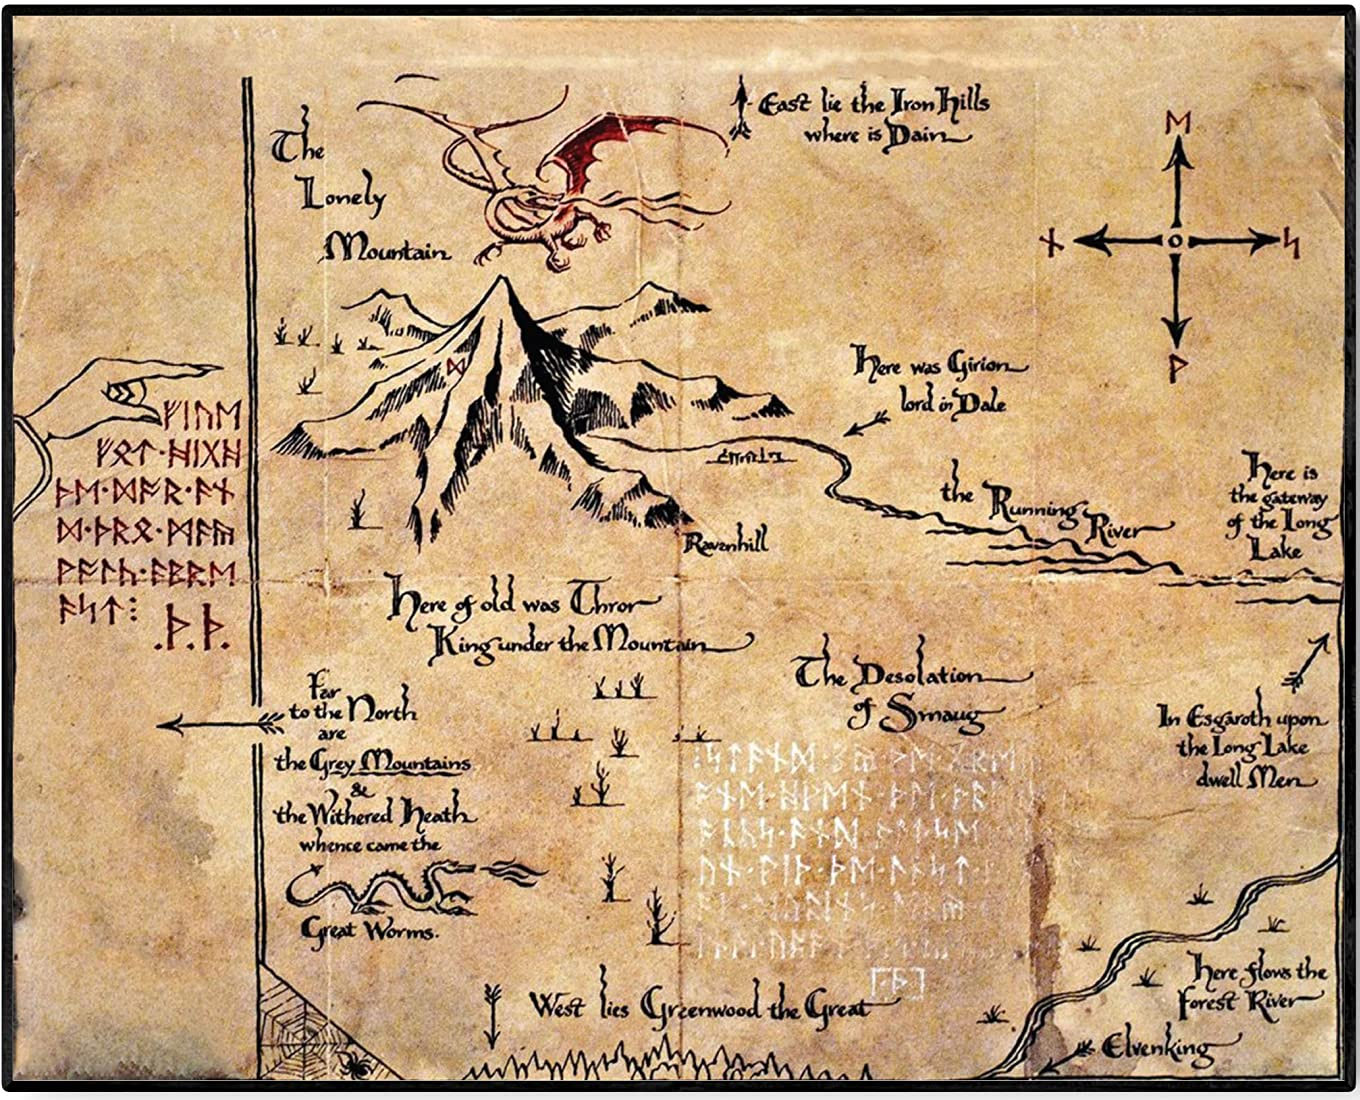 The
Lonely
Mountain
East lie the Iron Hills
where is Dain
ᛖ
ᚾ
ᛋ
ᚹ
ᛞ
Here was Girion
lord in Dale
ᚠᛁᚢᛖ
ᚠᛟᛏ·ᚻᛁᚷᚻ
ᚦᛖ·ᛞᚩᚱ·ᚪᚾ
ᛞ·ᚦᚱᛟ·ᛗᚪᚣ
ᚹᚪᛚᚳ·ᚪᛒᚱᛖ
ᚪᛋᛏ⁝
.ᚦ.ᚦ.
the Running River
Here is
the gateway
of the Long
Lake
Ravenhill
Here of old was Thror
King under the Mountain
The Desolation
of Smaug
Far
to the North
are
the Grey Mountains
&
the Withered Heath
whence came the
Great Worms.
In Esgaroth upon
the Long Lake
dwell Men
Here flows the
Forest River
West lies Greenwood the Great
Elvenking